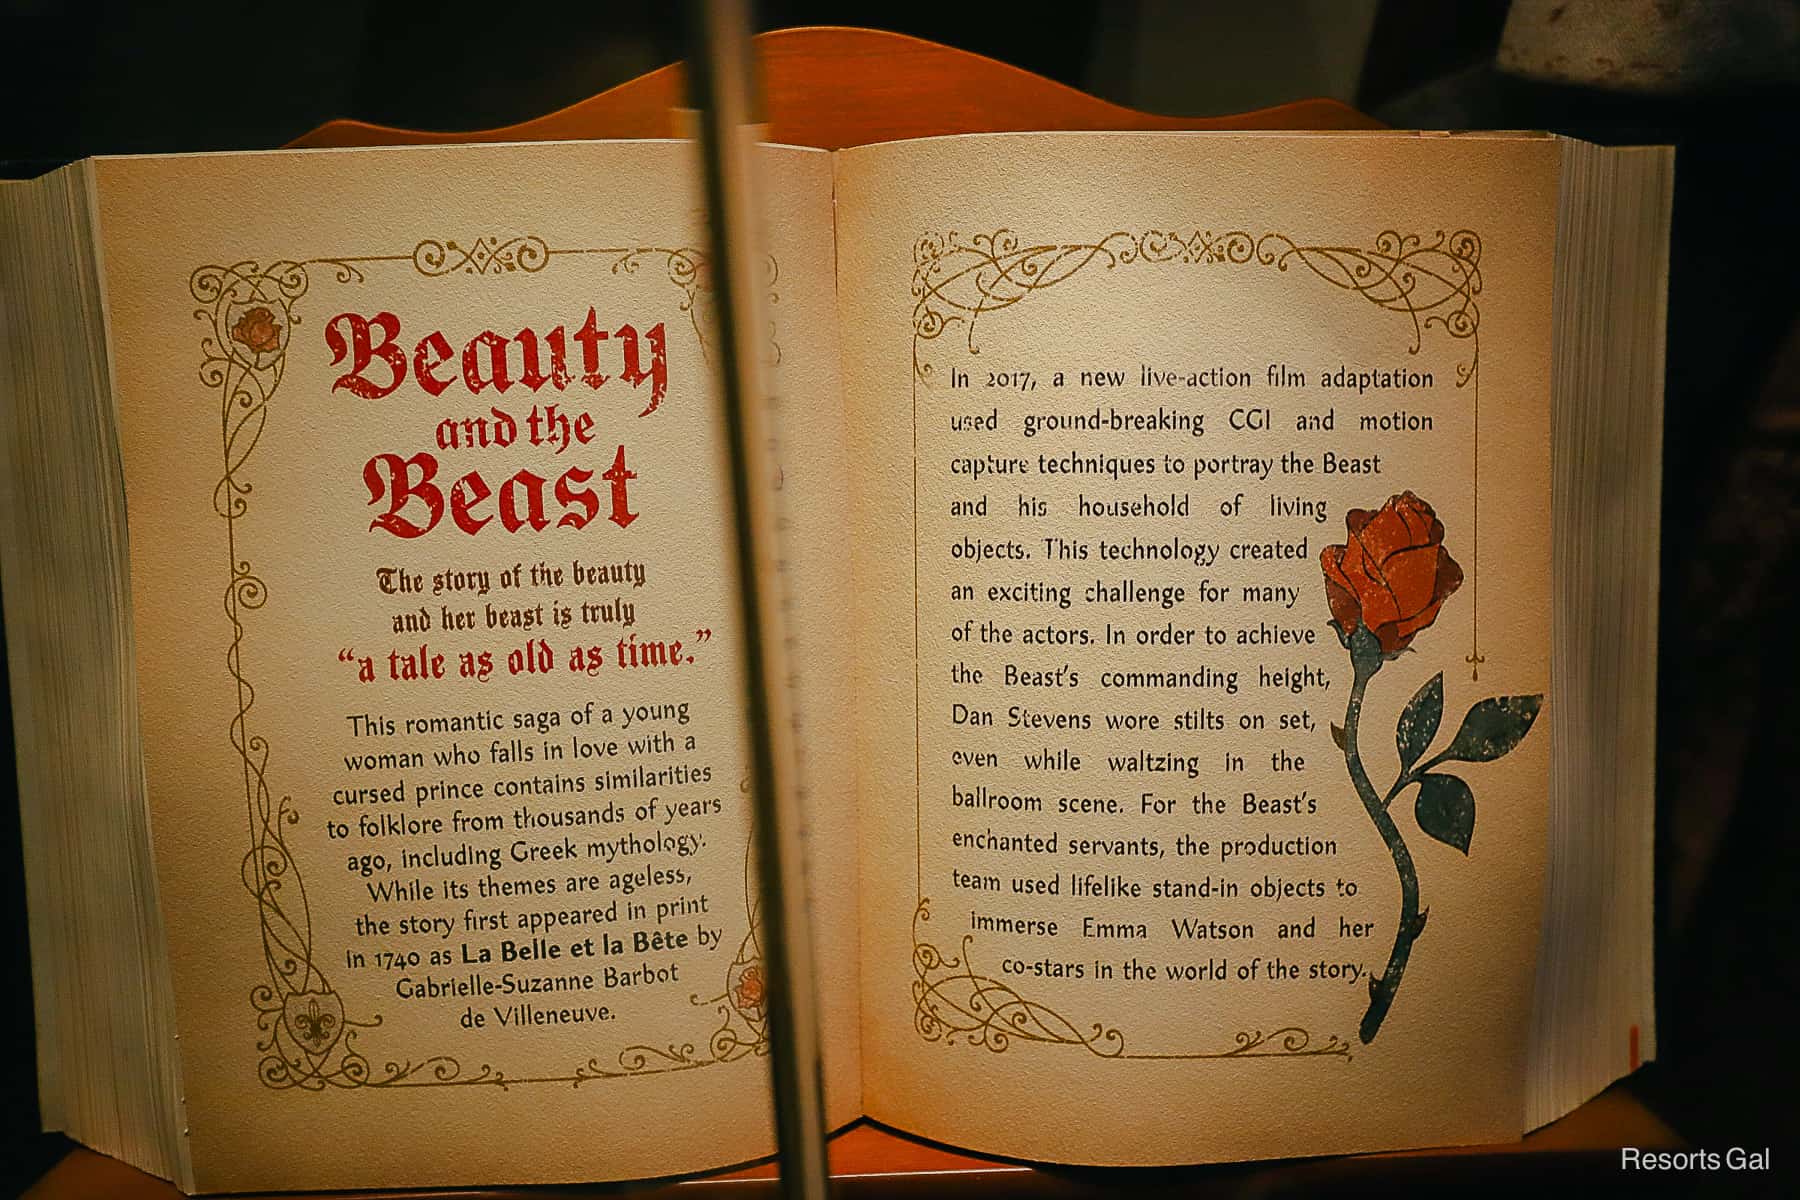 Beauty
and the
Beast
The story of the beauty
and her beast is truly
“a tale as old as time.”
This romantic saga of a young
woman who falls in love with a
cursed prince contains similarities
to folklore from thousands of years
ago, including Greek mythology.
While its themes are ageless,
the story first appeared in print
in 1740 as La Belle et la Bête by
Gabrielle-Suzanne Barbot
de Villeneuve.
In 2017, a new live-action film adaptation
used ground-breaking CGI and motion
capture techniques to portray the Beast
and his household of living
objects. This technology created
an exciting challenge for many
of the actors. In order to achieve
the Beast's commanding height,
Dan Stevens wore stilts on set,
even while waltzing in the
ballroom scene. For the Beast's
enchanted servants, the production
team used lifelike stand-in objects to
immerse Emma Watson and her
co-stars in the world of the story.
Resorts Gal